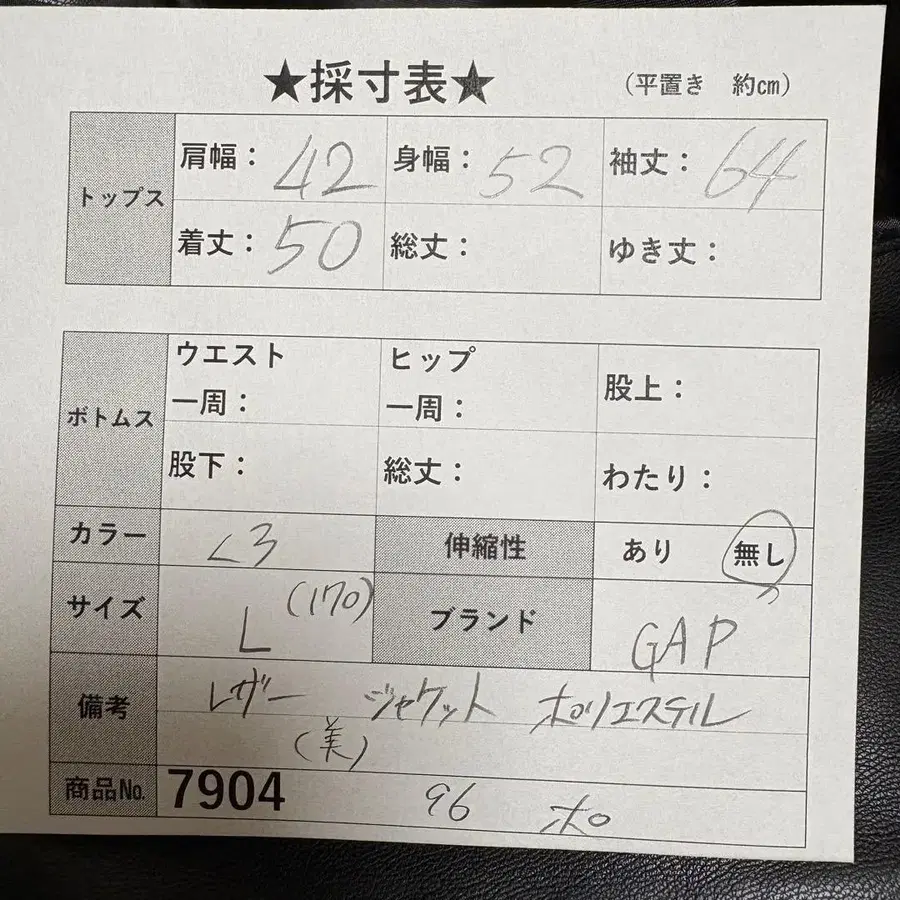 ★採寸表★ (平置き 約cm)
トップス 肩幅: 42 身幅: 52 袖丈: 64
着丈: 50 総丈: ゆき丈:
ボトムス ウエスト一周: ヒップ一周: 股上:
股下: 総丈: わたり:
カラー くろ 伸縮性 あり 無し
サイズ L (170) ブランド GAP
備考 レザー ジャケット ポリエステル
(美)
商品No. 7904 96 ポ